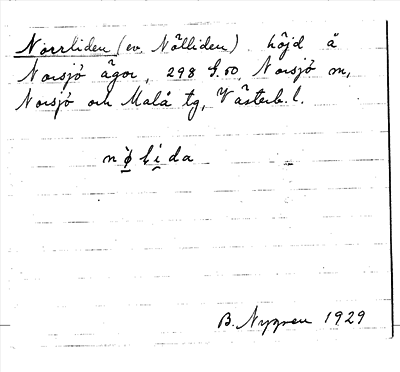 Norrliden (ev. Nölliden) höjd å
Norsjö ägor, 298 S.50, Norsjö sn,
Norsjö och Malå tg, Västerb. l.
nø̀li̠da
B. Nygren 1929